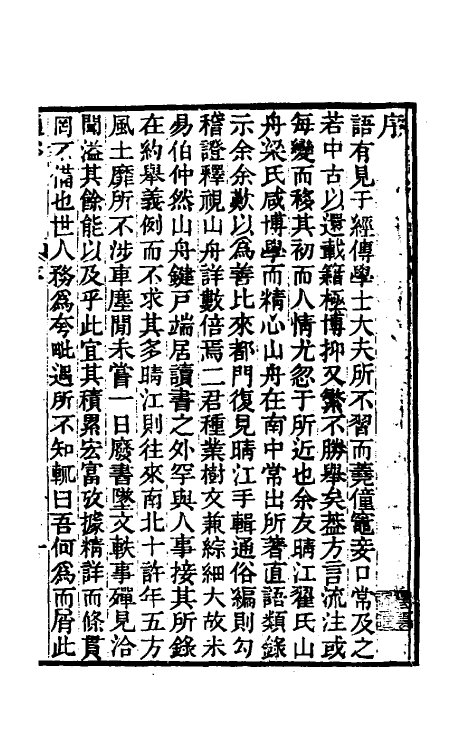 序
語有見于經傳學士大夫所不習而蕘僮竈妾口常及之
若中古以還載籍極博抑又繁不勝舉矣蓋方言流注或
每變而移其初而人情尤忽于所近也余友晴江翟氏山
舟梁氏咸博學而精心山舟在南中常出所著直語類錄
示余余歎以為善比來都門復見晴江手輯通俗編則勾
稽證釋視山舟詳數倍焉二君種業樹文兼綜細大故未
易伯仲然山舟鍵戸端居讀書之外罕與人事接其所錄
在約舉義例而不求其多晴江則往來南北十許年五方
風土靡所不涉車塵閒未嘗一日廢書墜文軼事殫見洽
聞溢其餘能以及乎此宜其積累宏富攷據精詳而條貫
罔不備也世人務為夸毗遇所不知輒曰吾何為而屑此